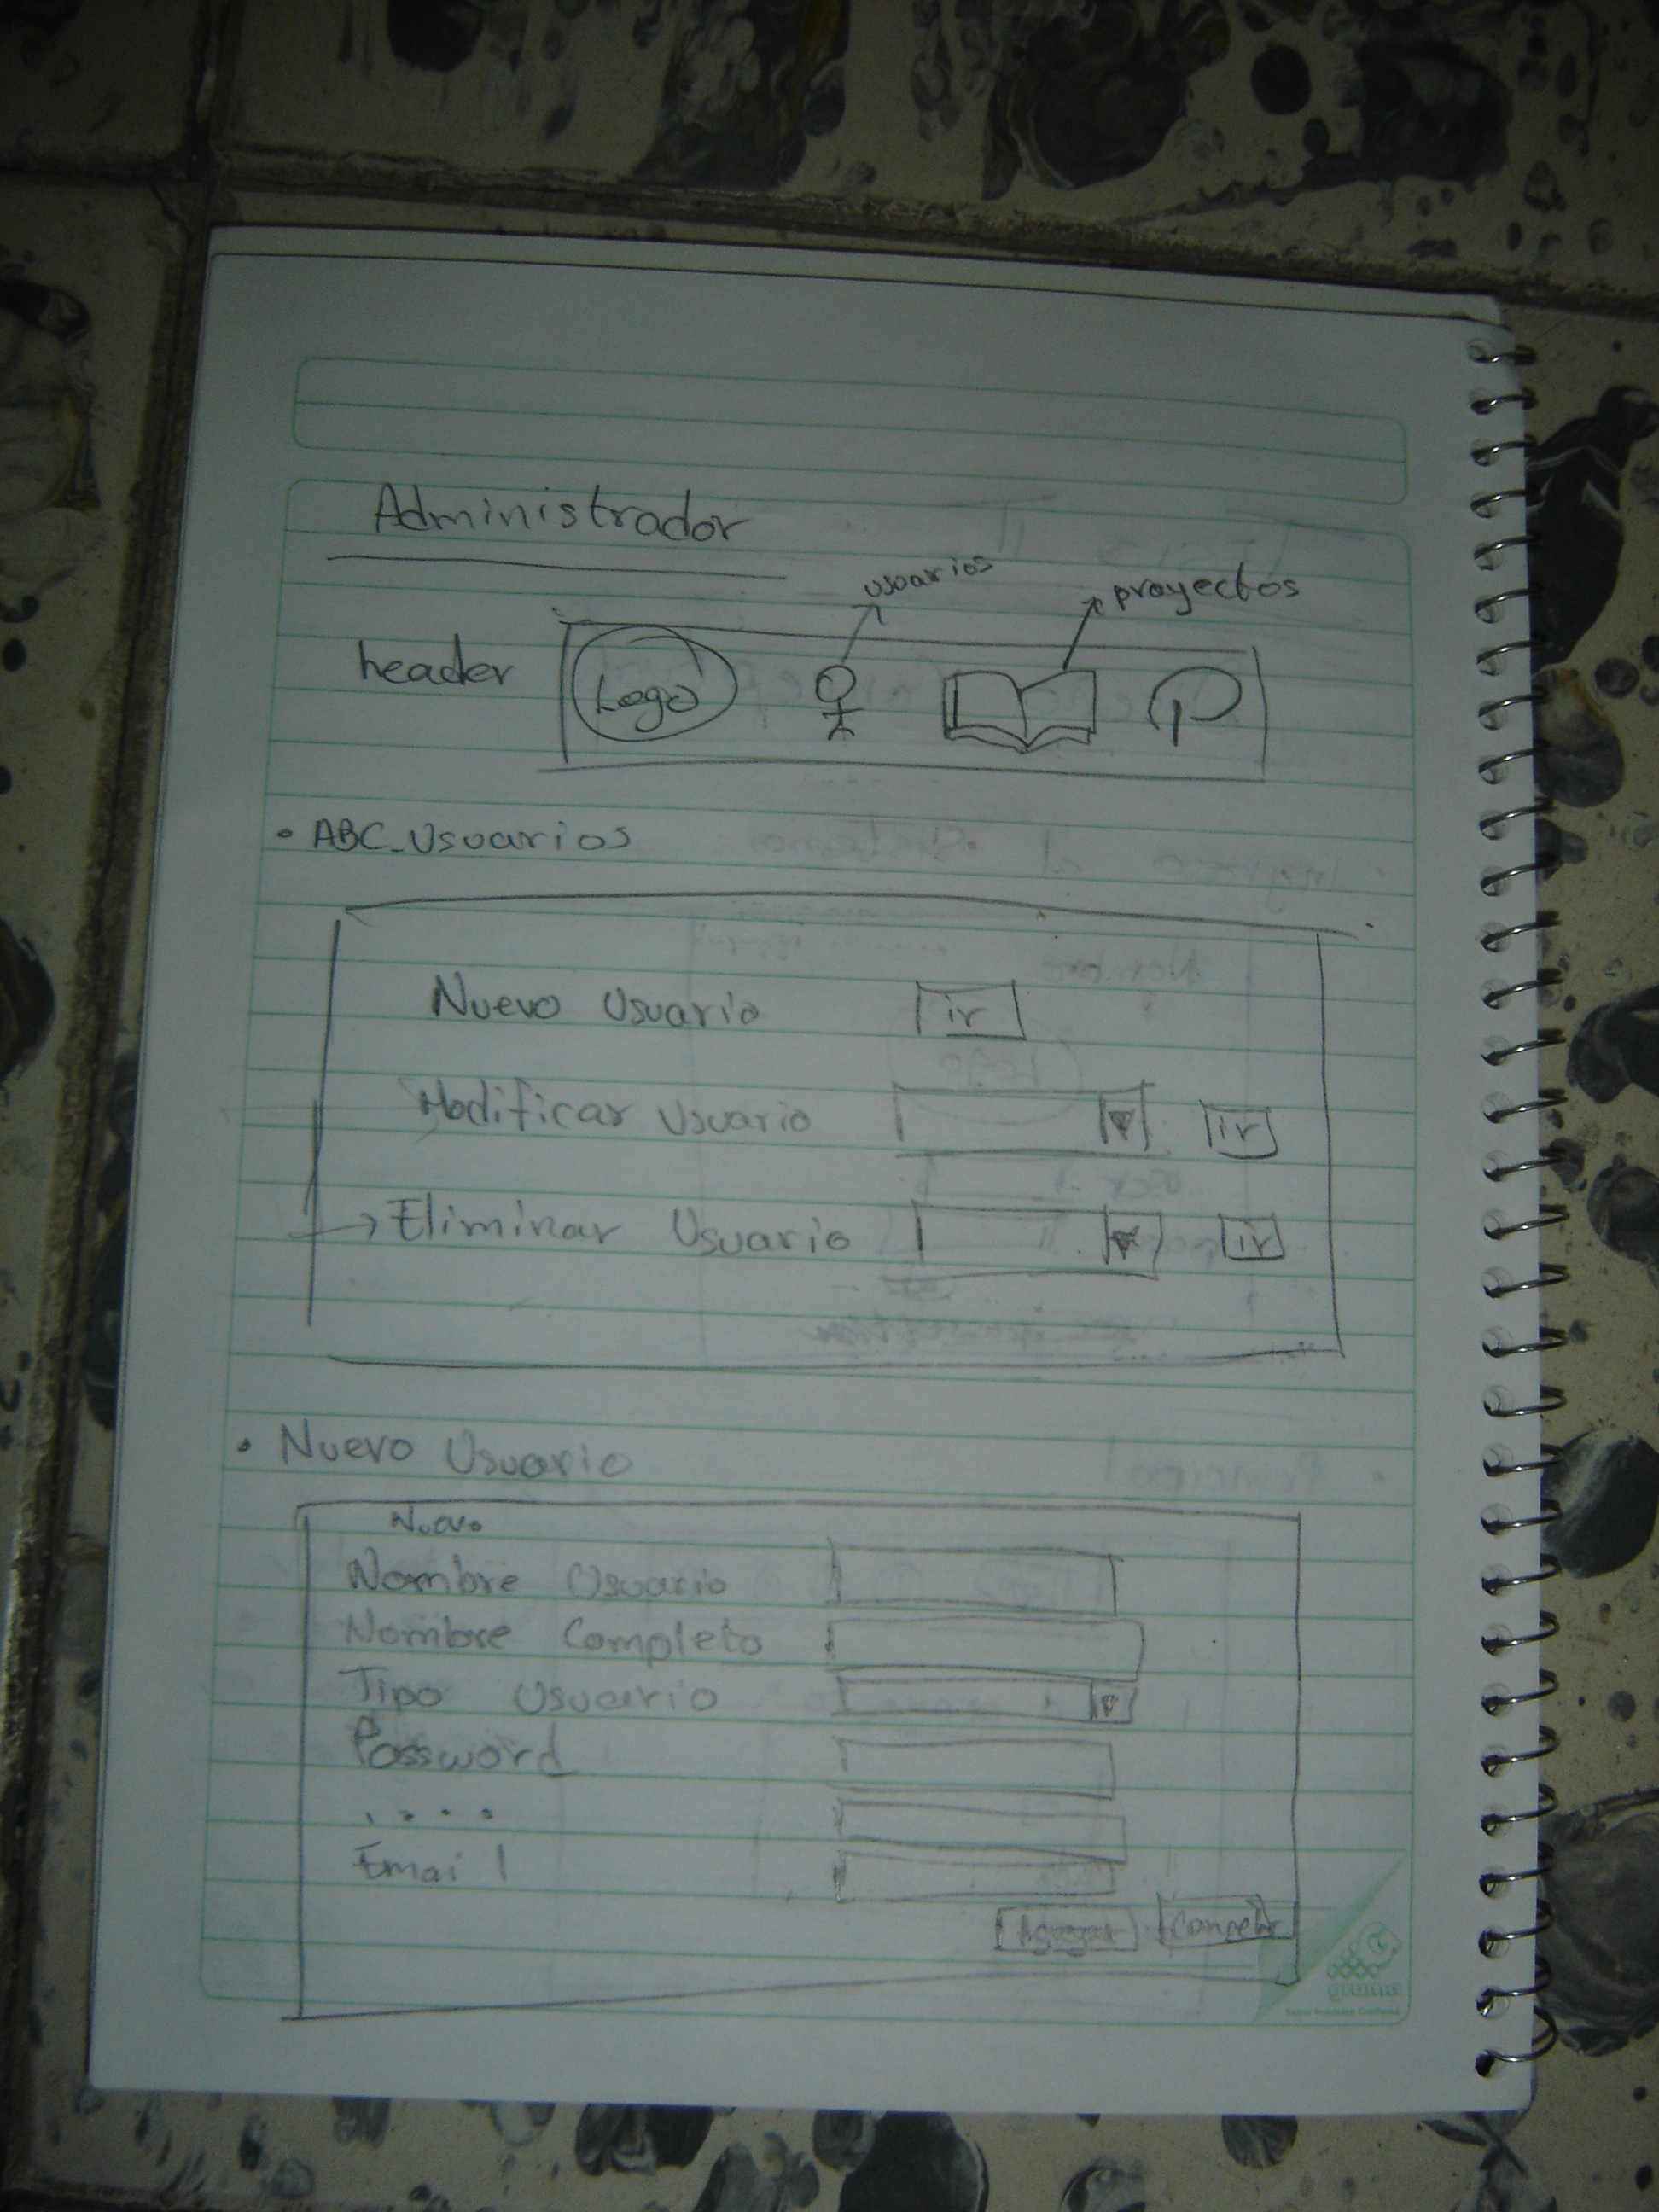 Administrador
usuarios
proyectos
header
Logo
• ABC_Usuarios
Nuevo Usuario ir
Modificar Usuario ir
Eliminar Usuario ir
• Nuevo Usuario
Nuevo
Nombre Usuario
Nombre Completo
Tipo Usuario
Password
. . . .
Email
Agregar Cancelar
grama